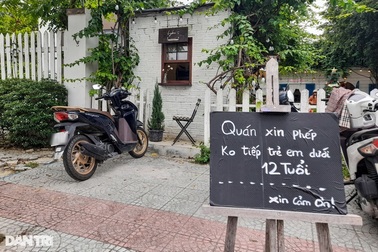 Quán xin phép
Ko tiếp trẻ em dưới
12 Tuổi
xin cảm ơn!
DÂN TRÍ